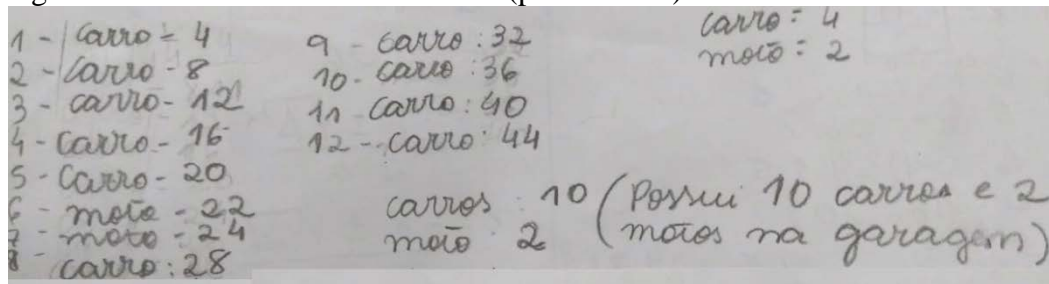 1 - carro = 4
2 - Carro - 8
3 - carro - 12
4 - Carro - 16
5 - Carro - 20
6 - moto - 22
7 - moto - 24
8 - carro : 28
9 - carro : 32
10 - carro : 36
11 carro : 40
12 - carro : 44
carro = 4
moto = 2
carros : 10 (Possui 10 carros e 2
moto 2 (motos na garagem)